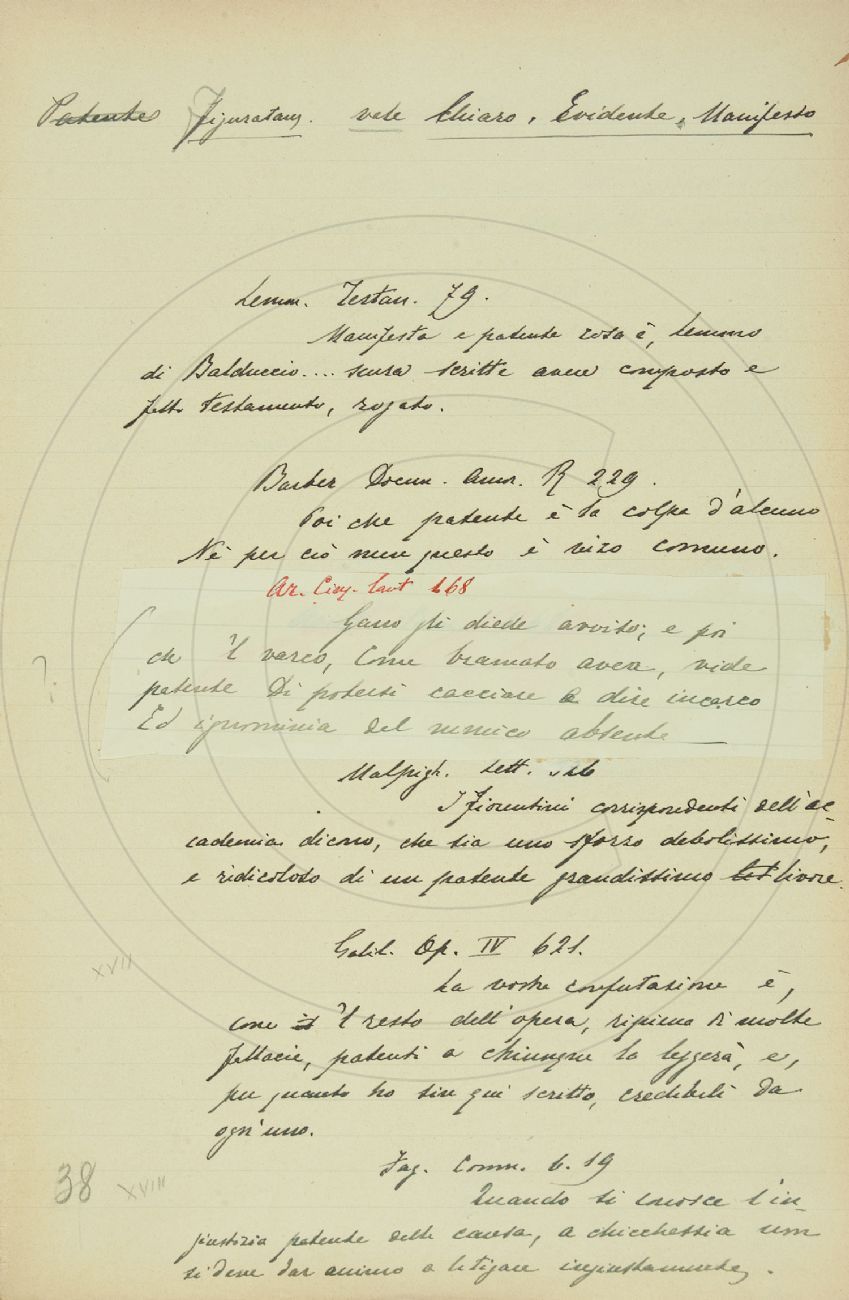 Patente Figuratam. vale Chiaro, Evidente, Manifesto
Lemm. Testam. 79.
Manifesta e patente cosa è, Lemmo
di Balduccio.... scura scritte avere composto e
fatto testamento, rogato.
Barber Docum. Amor. R 229.
Poi che patente è la colpa d'alcuno
Nè per ciò men questo è vizo comuno.
Ar. Cinq. Cant 168
Gano gli diede avviso; e poi
che 'l varco, Come bramato avea, vide
patente Di potersi cacciare a dire incarco
Ed ignominia del nemico absente
?
Malpigh. Lett. 216
I Fiorentini corrispondenti dell'ac-
cademia dicono, che sia uno sforzo debolissimo,
e ridicoloso di un patente grandissimo livore.
XVII
Galil. Op. IV 621.
La vostra confutazione è,
come 'l resto dell'opera, ripiena di molte
fallacie, patenti a chiunque la leggerà, e,
per quanto ho sin qui scritto, credibili da
ogn'uno.
38 XVIII
Fag. Comm. 6. 19
Quando si conosce l'in-
giustizia patente della causa, a chicchessia non
si deve dar animo a litigare ingiustamente.